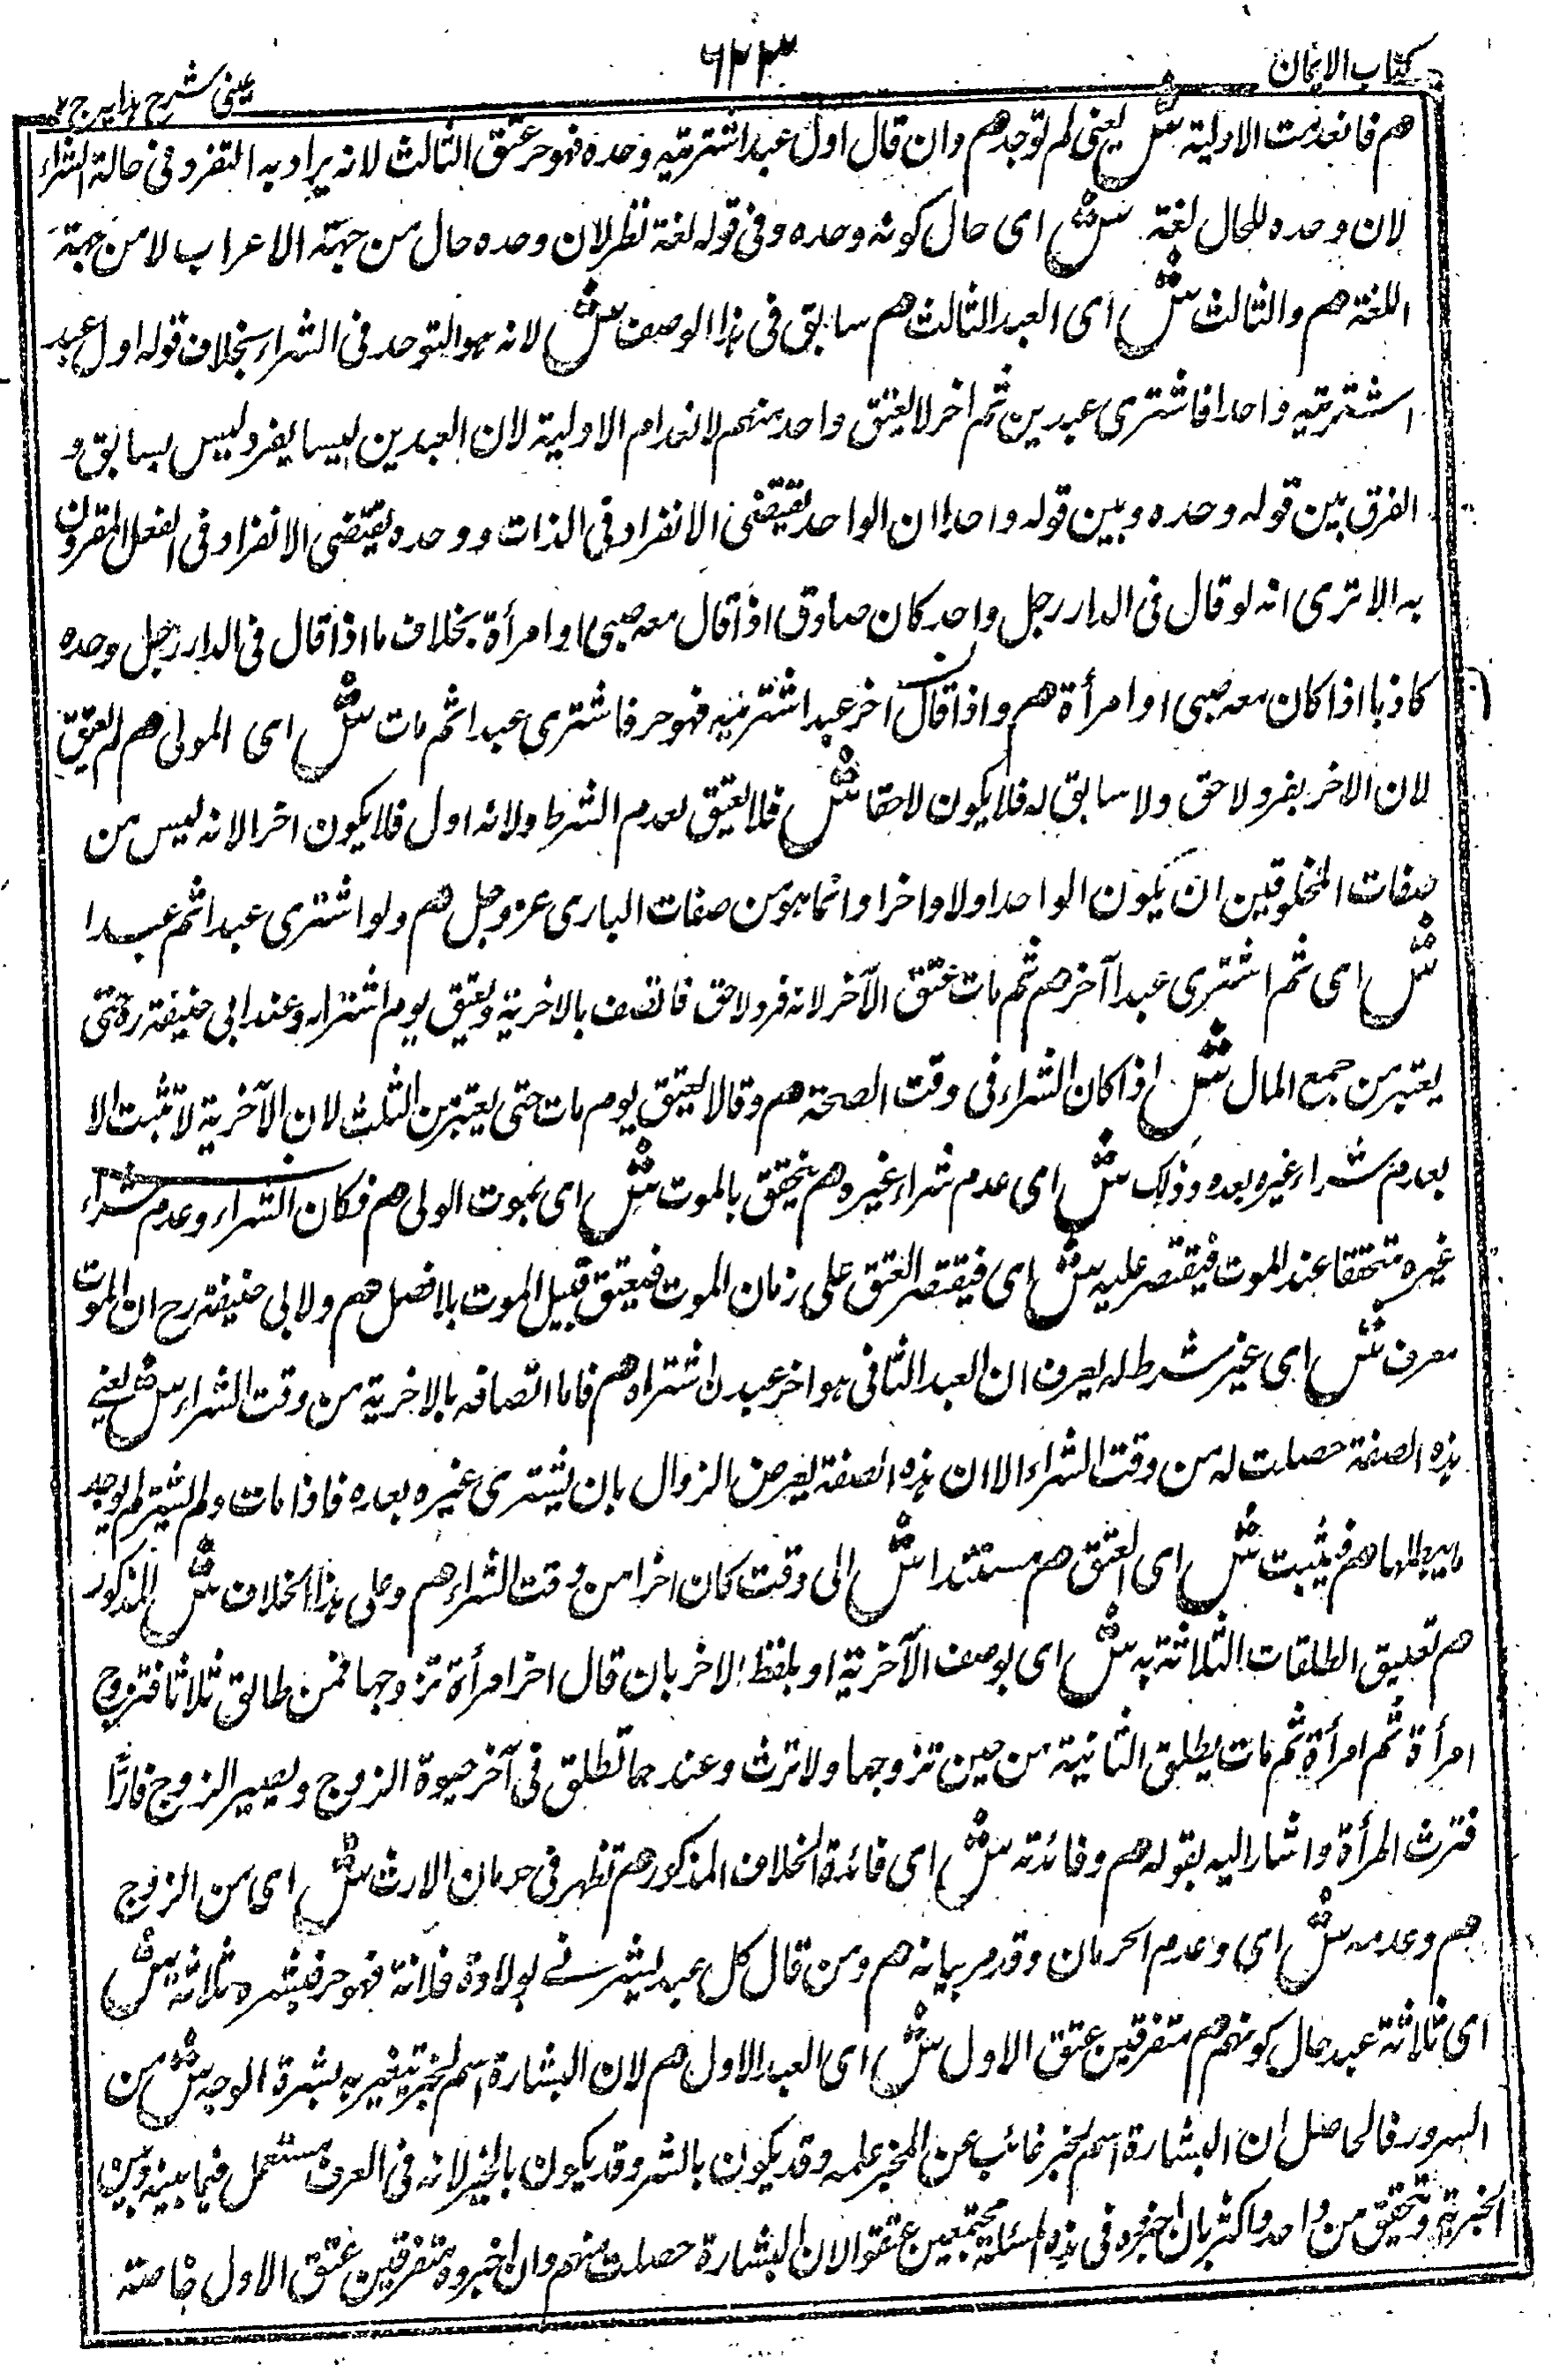 كتاب الايمان
٦٢٣
عينى شرح هدايه ج ٢
هم فانعدمت الاولية ش يعنى لم توجد هم وان قال اول عبد اشتريته وحده فهو حر عتق الثالث لانه يراد به التفرد فى حالة الشراء
لان وحده للحال لغة ش اى حال كونه وحده وفى قوله لغة نظر لان وحده حال من جهة الاعراب لا من جهة
اللغة هم والثالث ش اى العبد الثالث هم سابق فى هذا الوصف ش لانه هو التوحد فى الشراء بخلاف قوله اول عبد
اشتريته واحدا فاشترى عبدين ثم اخر لا يعتق واحد منهم لانعدام الاولية لان العبدين ليسا بفرد وليس بسابق و
الفرق بين قوله وحده وبين قوله واحدا ان الواحد يقتضى الانفراد فى الذات ووحده يقتضى الانفراد فى الفعل المقرون
به الا ترى انه لو قال فى الدار رجل واحد كان صادق اذا قال معه صبى او امرأة بخلاف ما اذا قال فى الدار رجل وحده
كاذبا اذا كان معه صبى او امرأة هم واذا قال آخر عبد اشتريته فهو حر فاشترى عبدا ثم مات ش اى المولى هم لم يعتق
لان الاخر بفرد لاحق ولا سابق له فلا يكون لاحقا ش فلا يعتق لعدم الشرط ولانه اول فلا يكون اخرا لانه ليس من
صفات المخلوقين ان يكون الواحد اولا واخرا وانما هو من صفات البارى عز وجل هم ولو اشترى عبدا ثم عبدا
ش اى ثم اشترى عبدا آخر هم ثم مات عتق الآخر لانه فرد لاحق فاتصف بالاخرية ويعتق يوم اشتراه عند ابى حنيفة رح حتى
يعتبر من جمع المال ش اذا كان الشراء فى وقت الصحة هم وقالا يعتق يوم مات حتى يعتبر من الثلث لان الآخرية لا تثبت الا
بعدم شراء غيره بعده وذلك ش اى عدم شراء غيره هم يتحقق بالموت ش اى بموت الولى هم فكان الشراء وعدم شراء
غيره متحققا عند الموت فيقتصر عليه ش اى فيقتصر العتق على زمان الموت فيعتق قبيل الموت بلا فصل هم ولابى حنيفة رح ان الموت
معرف ش اى غير شرط له يعرف ان العبد الثانى هو اخر عبد اشتراه هم فاما اتصافه بالاخرية من وقت الشراء ش يعنى
هذه الصفة حصلت له من وقت الشراء الا ان هذه الصفة يعرض الزوال بان يشترى غيره بعده فاذا مات ولم يشتر لم يوجد
ما يبطلها هم فيثبت ش اى العتق هم مستندا ش الى وقت كان اخرا من وقت الشراء هم وعلى هذا الخلاف ش المذكور
هم تعليق الطلقات الثلاثة به ش اى بوصف الآخرية او بلفظ الاخر بان قال اخر امرأة تزوجها فهن طالق ثلاثا فتزوج
امرأة ثم امرأة ثم مات يطلق الثانية من حين تزوجها ولا ترث وعندهما تطلق فى آخر حيوة الزوج ويصير الزوج فارّا
فترث المرأة واشار اليه بقوله هم وفائدته ش اى فائدة الخلاف المذكور هم تظهر فى حرمان الارث ش اى من الزوج
هم وعدمه ش اى وعدم الحرمان وقد مر بيانه هم ومن قال كل عبد بشرنى بولادة فلانة فهو حر فبشره ثلاثة ش
اى ثلاثة عبد حال كونهم هم متفرقين عتق الاول ش اى العبد الاول هم لان البشارة اسم لخبر يتغير به بشرة الوجه ش من
السرور فالحاصل ان البشارة اسم لخبر غائب عن المخبر علمه وقد يكون بالشر وقد يكون بالخير لانه فى العرف مستعمل فيما بينه وبين
الخبر وتحقيق من واحد واكثر بان اخبروه فى هذه المسئلة مجتمعين عتقوا لان البشارة حصلت منهم وان اخبروه متفرقين عتق الاول خاصة